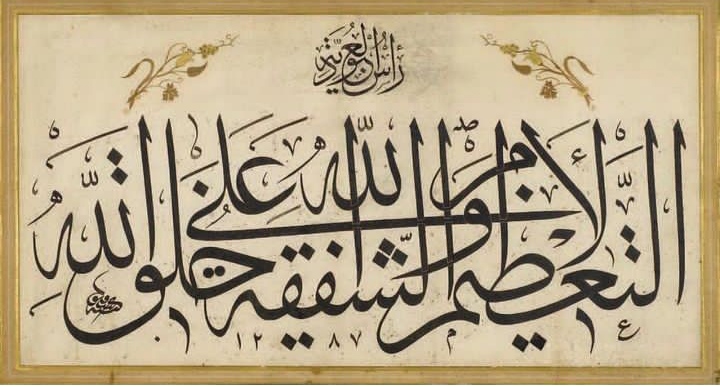 رأس العبودية
التعظيم لأمر الله والشفقة على خلق الله
١٢٨٧